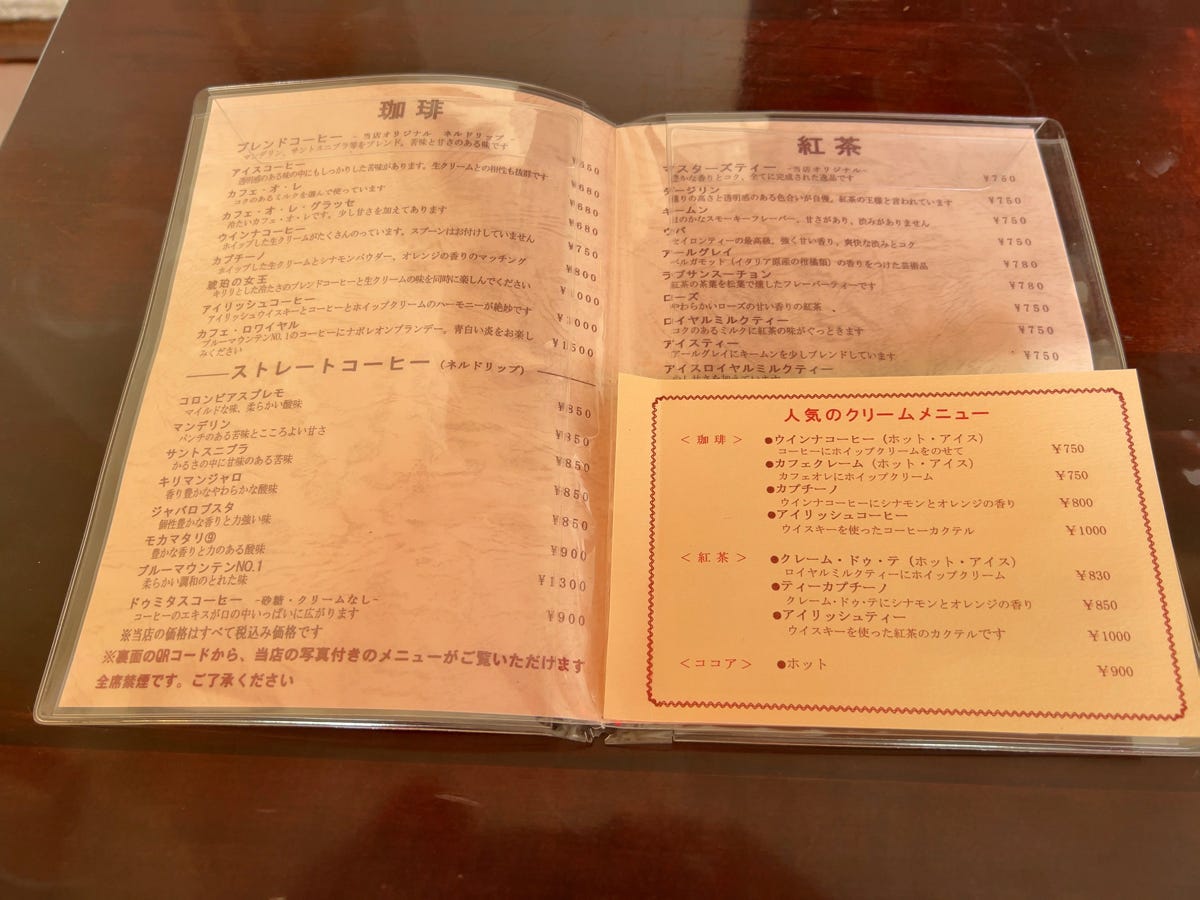 珈琲
ブレンドコーヒー －当店オリジナル ネルドリップ－
マンデリン、サントスニブラ等をブレンド。苦味と甘さのある味です
アイスコーヒー
透明感のある味の中にもしっかりした苦味があります。生クリームとの相性も抜群です ¥650
カフェ・オ・レ ¥680
コクのあるミルクを選んで使っています
カフェ・オ・レ・グラッセ ¥680
冷たいカフェ・オ・レです。少し甘さを加えてあります
ウインナコーヒー ¥680
ホイップした生クリームがたくさんのっています。スプーンはお付けしていません
カプチーノ ¥750
ホイップした生クリームとシナモンパウダー、オレンジの香りのマッチング
琥珀の女王 ¥800
キリリとした冷たさのブレンドコーヒーと生クリームの味を同時に楽しんでください
アイリッシュコーヒー ¥1000
アイリッシュウイスキーとコーヒーとホイップクリームのハーモニーが絶妙です
カフェ・ロワイヤル ¥1000
ブルーマウンテンNO.1のコーヒーにナポレオンブランデー。青白い炎をお楽し
みください ¥1500
ストレートコーヒー（ネルドリップ）
コロンビアスプレモ
マイルドな味、柔らかい酸味 ¥850
マンデリン
パンチのある苦味とこころよい甘さ ¥850
サントスニブラ
かるさの中に甘味のある苦味 ¥850
キリマンジャロ
香り豊かなやわらかな酸味 ¥850
ジャバロブスタ
個性豊かな香りと力強い味 ¥850
モカマタリ⑨
豊かな香りと力のある酸味 ¥900
ブルーマウンテンNO.1
柔らかい調和のとれた味 ¥1300
ドゥミタスコーヒー －砂糖・クリームなし－
コーヒーのエキスが口の中いっぱいに広がります ¥900
※当店の価格はすべて税込み価格です
※裏面のQRコードから、当店の写真付きのメニューがご覧いただけます
全席禁煙です。ご了承ください
紅茶
マスターズティー －当店オリジナル－
豊かな香りとコク、全てに完成された逸品です ¥750
ダージリン
香りの高さと透明感のある色合いが自慢。紅茶の王様と言われています ¥750
キームン
ほのかなスモーキーフレーバー。甘さがあり、渋みがありません ¥750
ウバ
セイロンティーの最高級。強く甘い香り、爽快な渋みとコク ¥750
アールグレイ
ベルガモッド（イタリア原産の柑橘類）の香りをつけた芸術品 ¥780
ラプサンスーチョン
紅茶の茶葉を松葉で燻したフレーバーティーです ¥780
ローズ
やわらかいローズの甘い香りの紅茶 ¥750
ロイヤルミルクティー
コクのあるミルクに紅茶の味がぐっときます ¥750
アイスティー
アールグレイにキームンを少しブレンドしています ¥750
アイスロイヤルミルクティー
人気のクリームメニュー
＜珈琲＞ ●ウインナコーヒー（ホット・アイス）
コーヒーにホイップクリームをのせて ¥750
●カフェクレーム（ホット・アイス）
カフェオレにホイップクリーム ¥750
●カプチーノ
ウインナコーヒーにシナモンとオレンジの香り ¥800
●アイリッシュコーヒー
ウイスキーを使ったコーヒーカクテル ¥1000
＜紅茶＞ ●クレーム・ドゥ・テ（ホット・アイス）
ロイヤルミルクティーにホイップクリーム ¥830
●ティーカプチーノ
クレーム・ドゥ・テにシナモンとオレンジの香り ¥850
●アイリッシュティー
ウイスキーを使った紅茶のカクテルです ¥1000
＜ココア＞ ●ホット ¥900